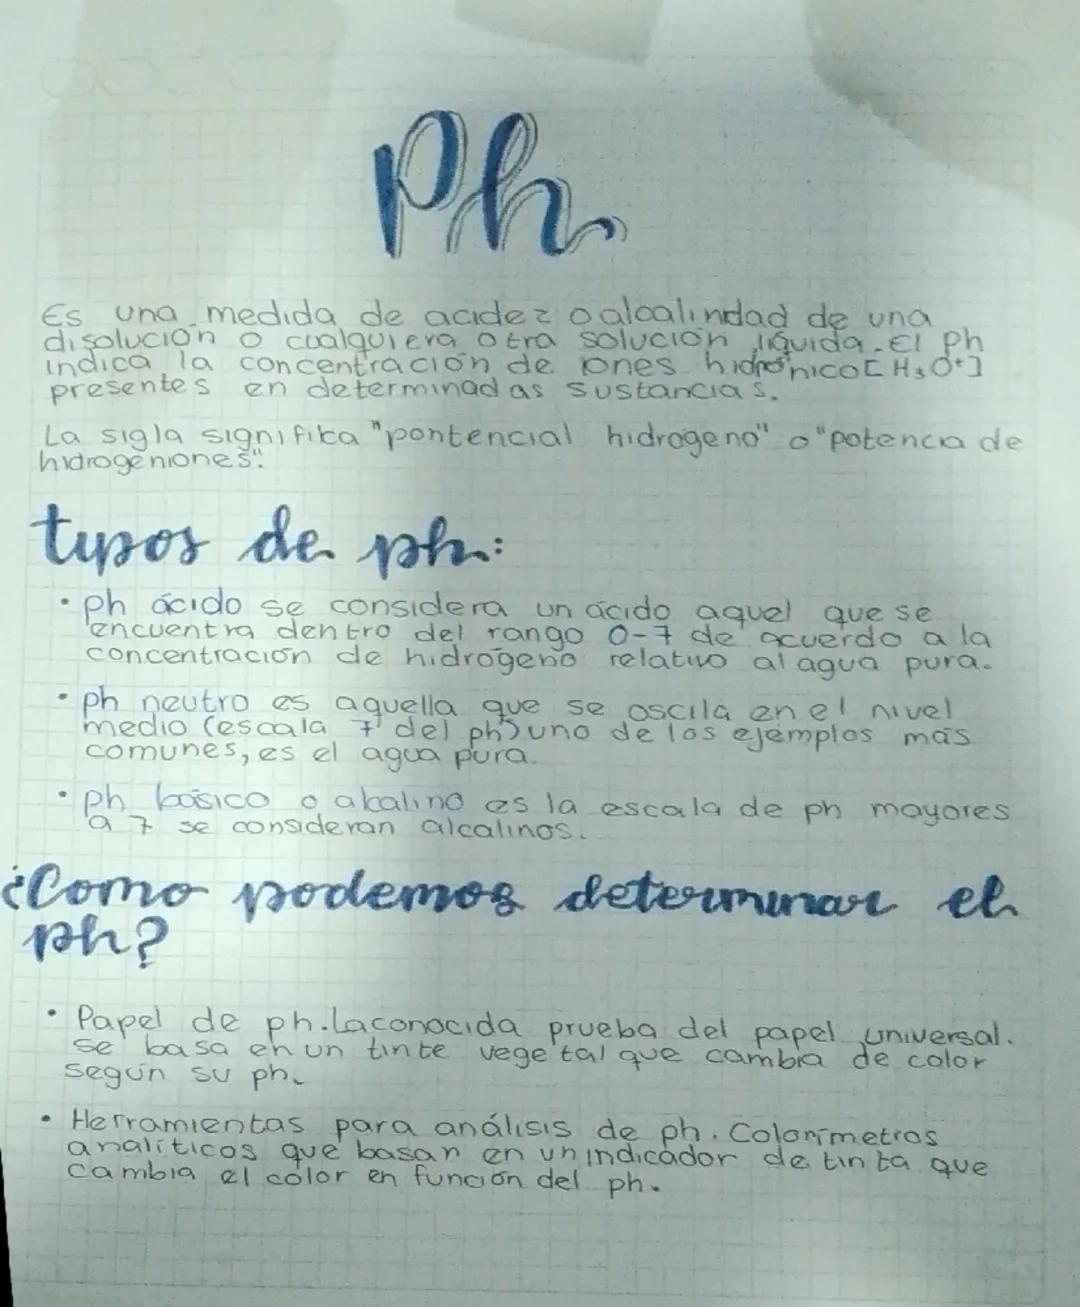 Ph
Es una medida de acidez o alcalindad de una
disolución o cualquiera otra solución líquida. El Ph
indica la concentración de iones hidronico [H₃O⁺]
presentes en determinadas sustancias.
La sigla signifika "pontencial hidrogeno" o "potencia de
hidrogeniones".
tipos de ph:
• ph ácido se considera un ácido aquel que se
encuentra dentro del rango 0-7 de acuerdo a la
concentración de hidrógeno relativo al agua pura.
• ph neutro es aquella que se oscila en el nivel
medio (escala 7 del ph) uno de los ejemplos más
comunes, es el agua pura.
• ph básico o akalino es la escala de ph mayores
a 7 se consideran alcalinos.
¿Como podemos determinar el
ph?
• Papel de ph. La conocida prueba del papel universal.
se basa en un tinte vegetal que cambia de color
según su ph.
• Herramientas para análisis de ph. Colorímetros
analíticos que basan en un indicador de tinta que
cambia el color en función del ph.